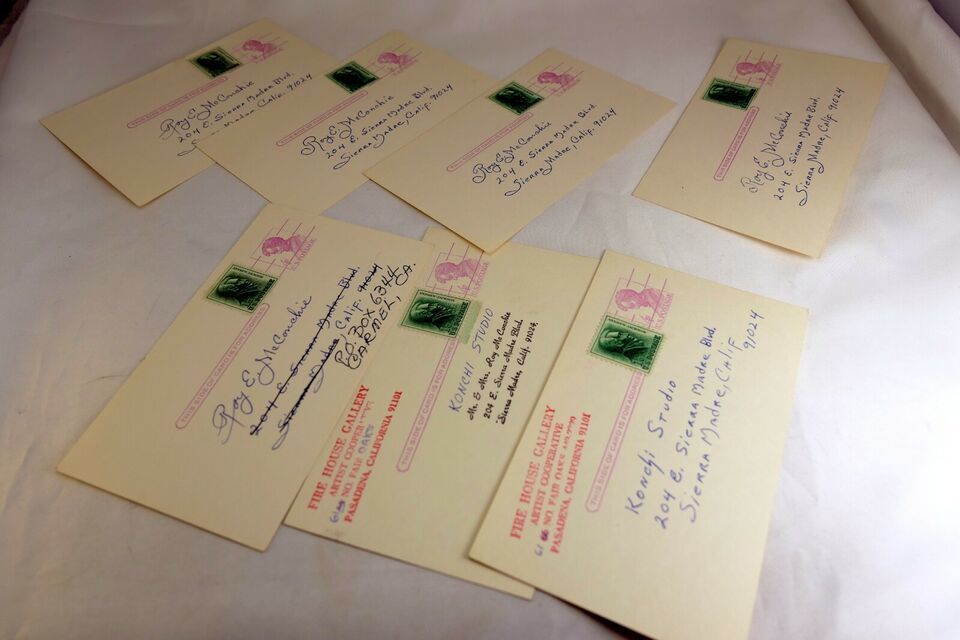 THIS SIDE OF CARD IS FOR ADDRESS
Roy E. McConchie
204 E. Sierra Madre Blvd.
Madre Calif. 91024
THIS SIDE OF CARD IS FOR ADDRESS
Roy E. McConchie
204 E. Sierra Madre Blvd.
Sierra Madre, Calif. 91024
THIS SIDE OF CARD IS FOR ADDRESS
Roy E. McConchie
204 E. Sierra Madre Blvd.
Sierra Madre, Calif. 91024
THIS SIDE OF CARD IS FOR ADDRESS
Roy E. McConchie
204 E. Sierra Madre Blvd.
Sierra Madre, Calif 91024
U.S. POSTAGE
THIS SIDE OF CARD IS FOR ADDRESS
Roy E. McConchie
204 E. Sierra Madre Blvd.
Sierra Madre Calif. 91024
P.O. BOX 6344
CARMEL, CA.
U.S. POSTAGE
THIS SIDE OF CARD IS FOR ADDRESS
KONCHI STUDIO
Mr. & Mrs. Roy McConchie
204 E. Sierra Madre Blvd.
Sierra Madre, Calif. 91024
FIRE HOUSE GALLERY
ARTIST COOPER
NO. FAIR OAKS
PASADENA, CALIFORNIA 91101
U.S. POSTAGE
THIS SIDE OF CARD IS FOR ADDRESS
KONCHI STUDIO
204 E. SIERRA MADRE BLVD
SIERRA MADRE, CALIF
91024
FIRE HOUSE GALLERY
ARTIST COOPERATIVE
NO. FAIR OAKS
PASADENA, CALIFORNIA 91101